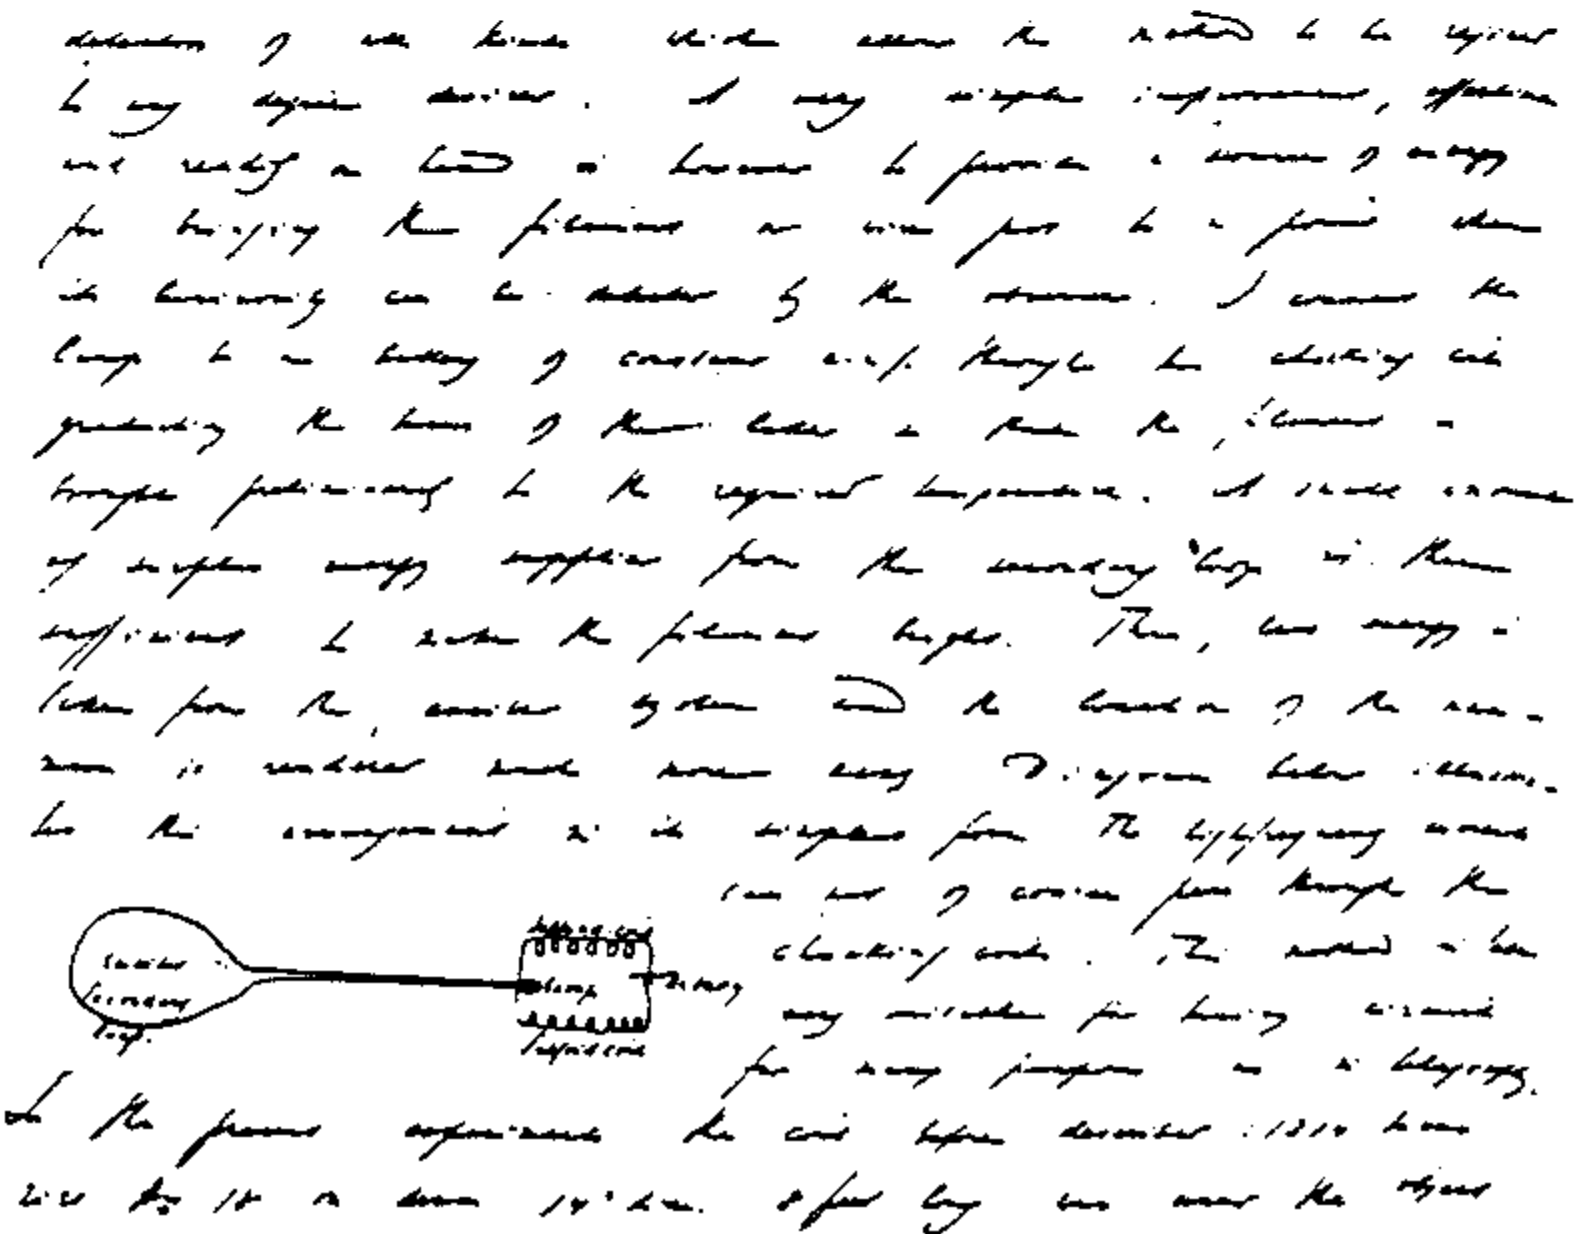 of all kinds which allow the method to be
to any degree desired. A very simple improvement, effective
and readily on hand is however to provide a source of energy
for bringing the filament or wire just to a point when
its luminosity can be detected by the observer. I connect the
lamp to a battery of constant e.m.f. through two choking coils
graduating the turns of the latter so that the filament is
brought preliminarily to the required temperature. A small amount
of surplus energy supplied from the secondary loop is then
sufficient to make the filament bright. Thus, less energy is
taken from the excited system and the location of the maxi-
mum is rendered much more easy. Diagram below illustra-
tes this arrangement in its simplest form. The high frequency currents
can not of course pass through the
choking coils. This method is also
very suitable for tuning circuits
for many purposes as in telegraphy.
Secondary
loop.
Self ind. coil
Lamp
Battery
Self ind. coil
In the present experiments the coil before described: 1314 turns
wire No 18 on drum 14" diam. 8 feet long was used the object